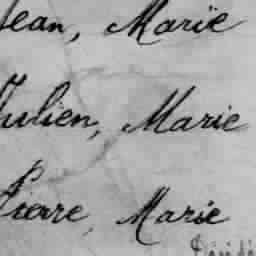 Jean, Marie
Julien, Marie
Pierre, Marie